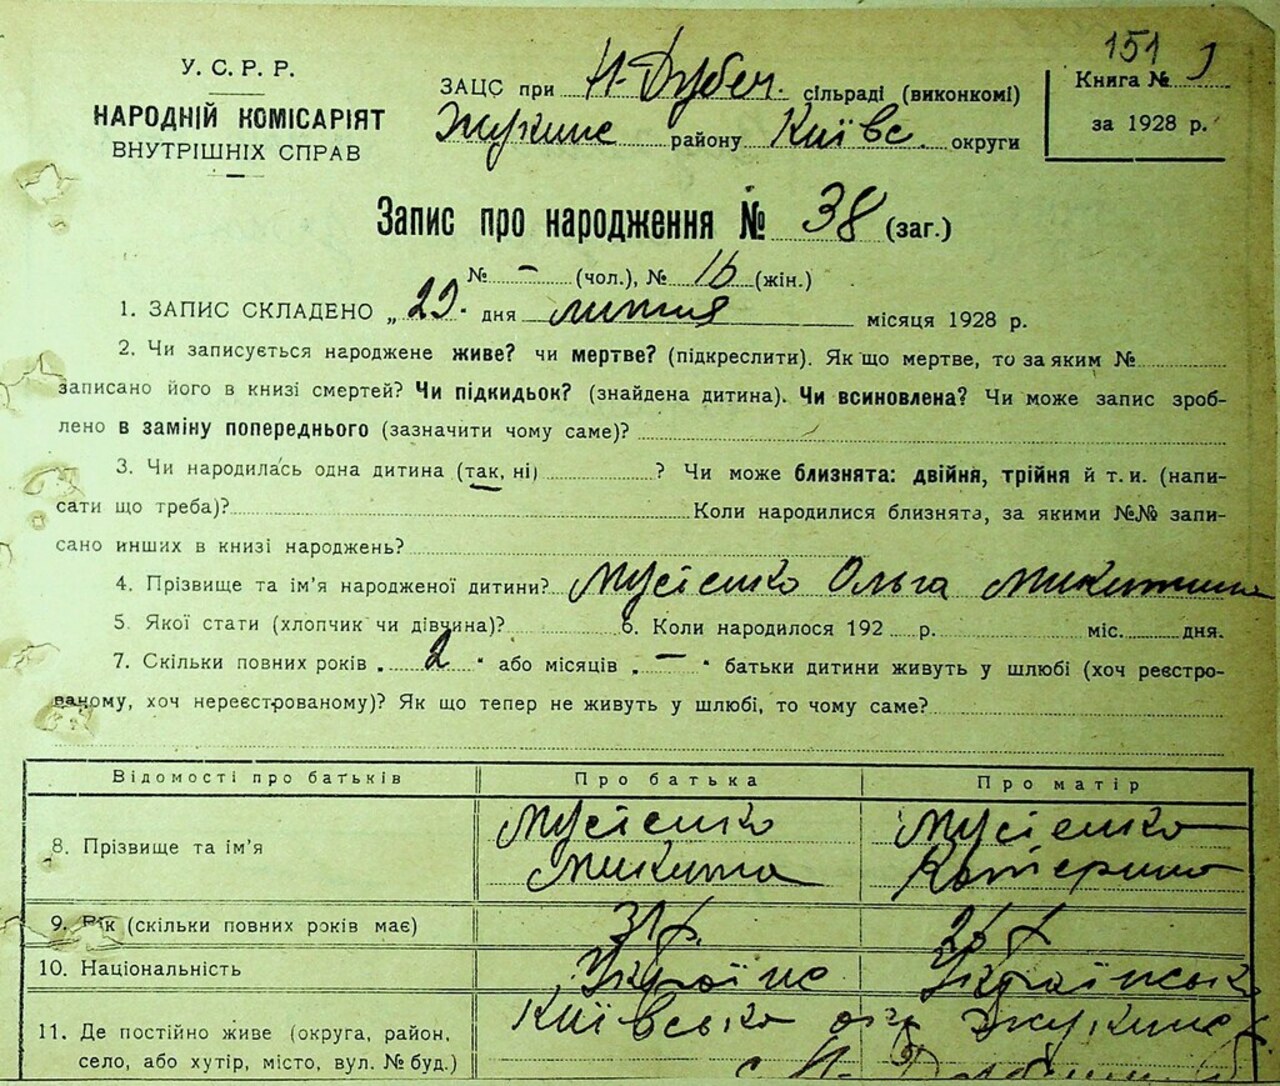 151
У. С. Р. Р.
НАРОДНІЙ КОМІСАРІЯТ
ВНУТРІШНІХ СПРАВ
ЗАЦС при Н-Дубеч. сільраді (виконкомі)
Жукинс району Київс. округи
Книга №
за 1928 р.
Запис про народження № 38 (заг.)
№ - (чол.), № 16 (жін.)
1. ЗАПИС СКЛАДЕНО „ 29. дня лютня місяця 1928 р.
2. Чи записується народжене живе? чи мертве? (підкреслити). Як що мертве, то за яким №
записано його в книзі смертей? Чи підкидьок? (знайдена дитина). Чи всиновлена? Чи може запис зроб-
лено в заміну попереднього (зазначити чому саме)?
3. Чи народилась одна дитина (так, ні) ? Чи може близнята: двійня, трійня й т. и. (напи-
сати що треба)? Коли народилися близнята, за якими №№ запи-
сано инших в книзі народжень?
4. Прізвище та ім'я народженої дитини? Мусієнко Ольга Микитина
5. Якої стати (хлопчик чи дівчина)? 6. Коли народилося 192 р. міс. дня.
7. Скільки повних років „ 2 " або місяців „ - " батьки дитини живуть у шлюбі (хоч реєстро-
ваному, хоч нереєстрованому)? Як що тепер не живуть у шлюбі, то чому саме?
Відомості про батьків Про батька Про матір
8. Прізвище та ім'я Мусієнко Микита Мусієнко Катерина
9. Вік (скільки повних років має) 31 р. 26 р
10. Національність Українс Українсько
11. Де постійно живе (округа, район, Київсько окр Жукинс
село, або хутір, місто, вул. № буд.) с Н-